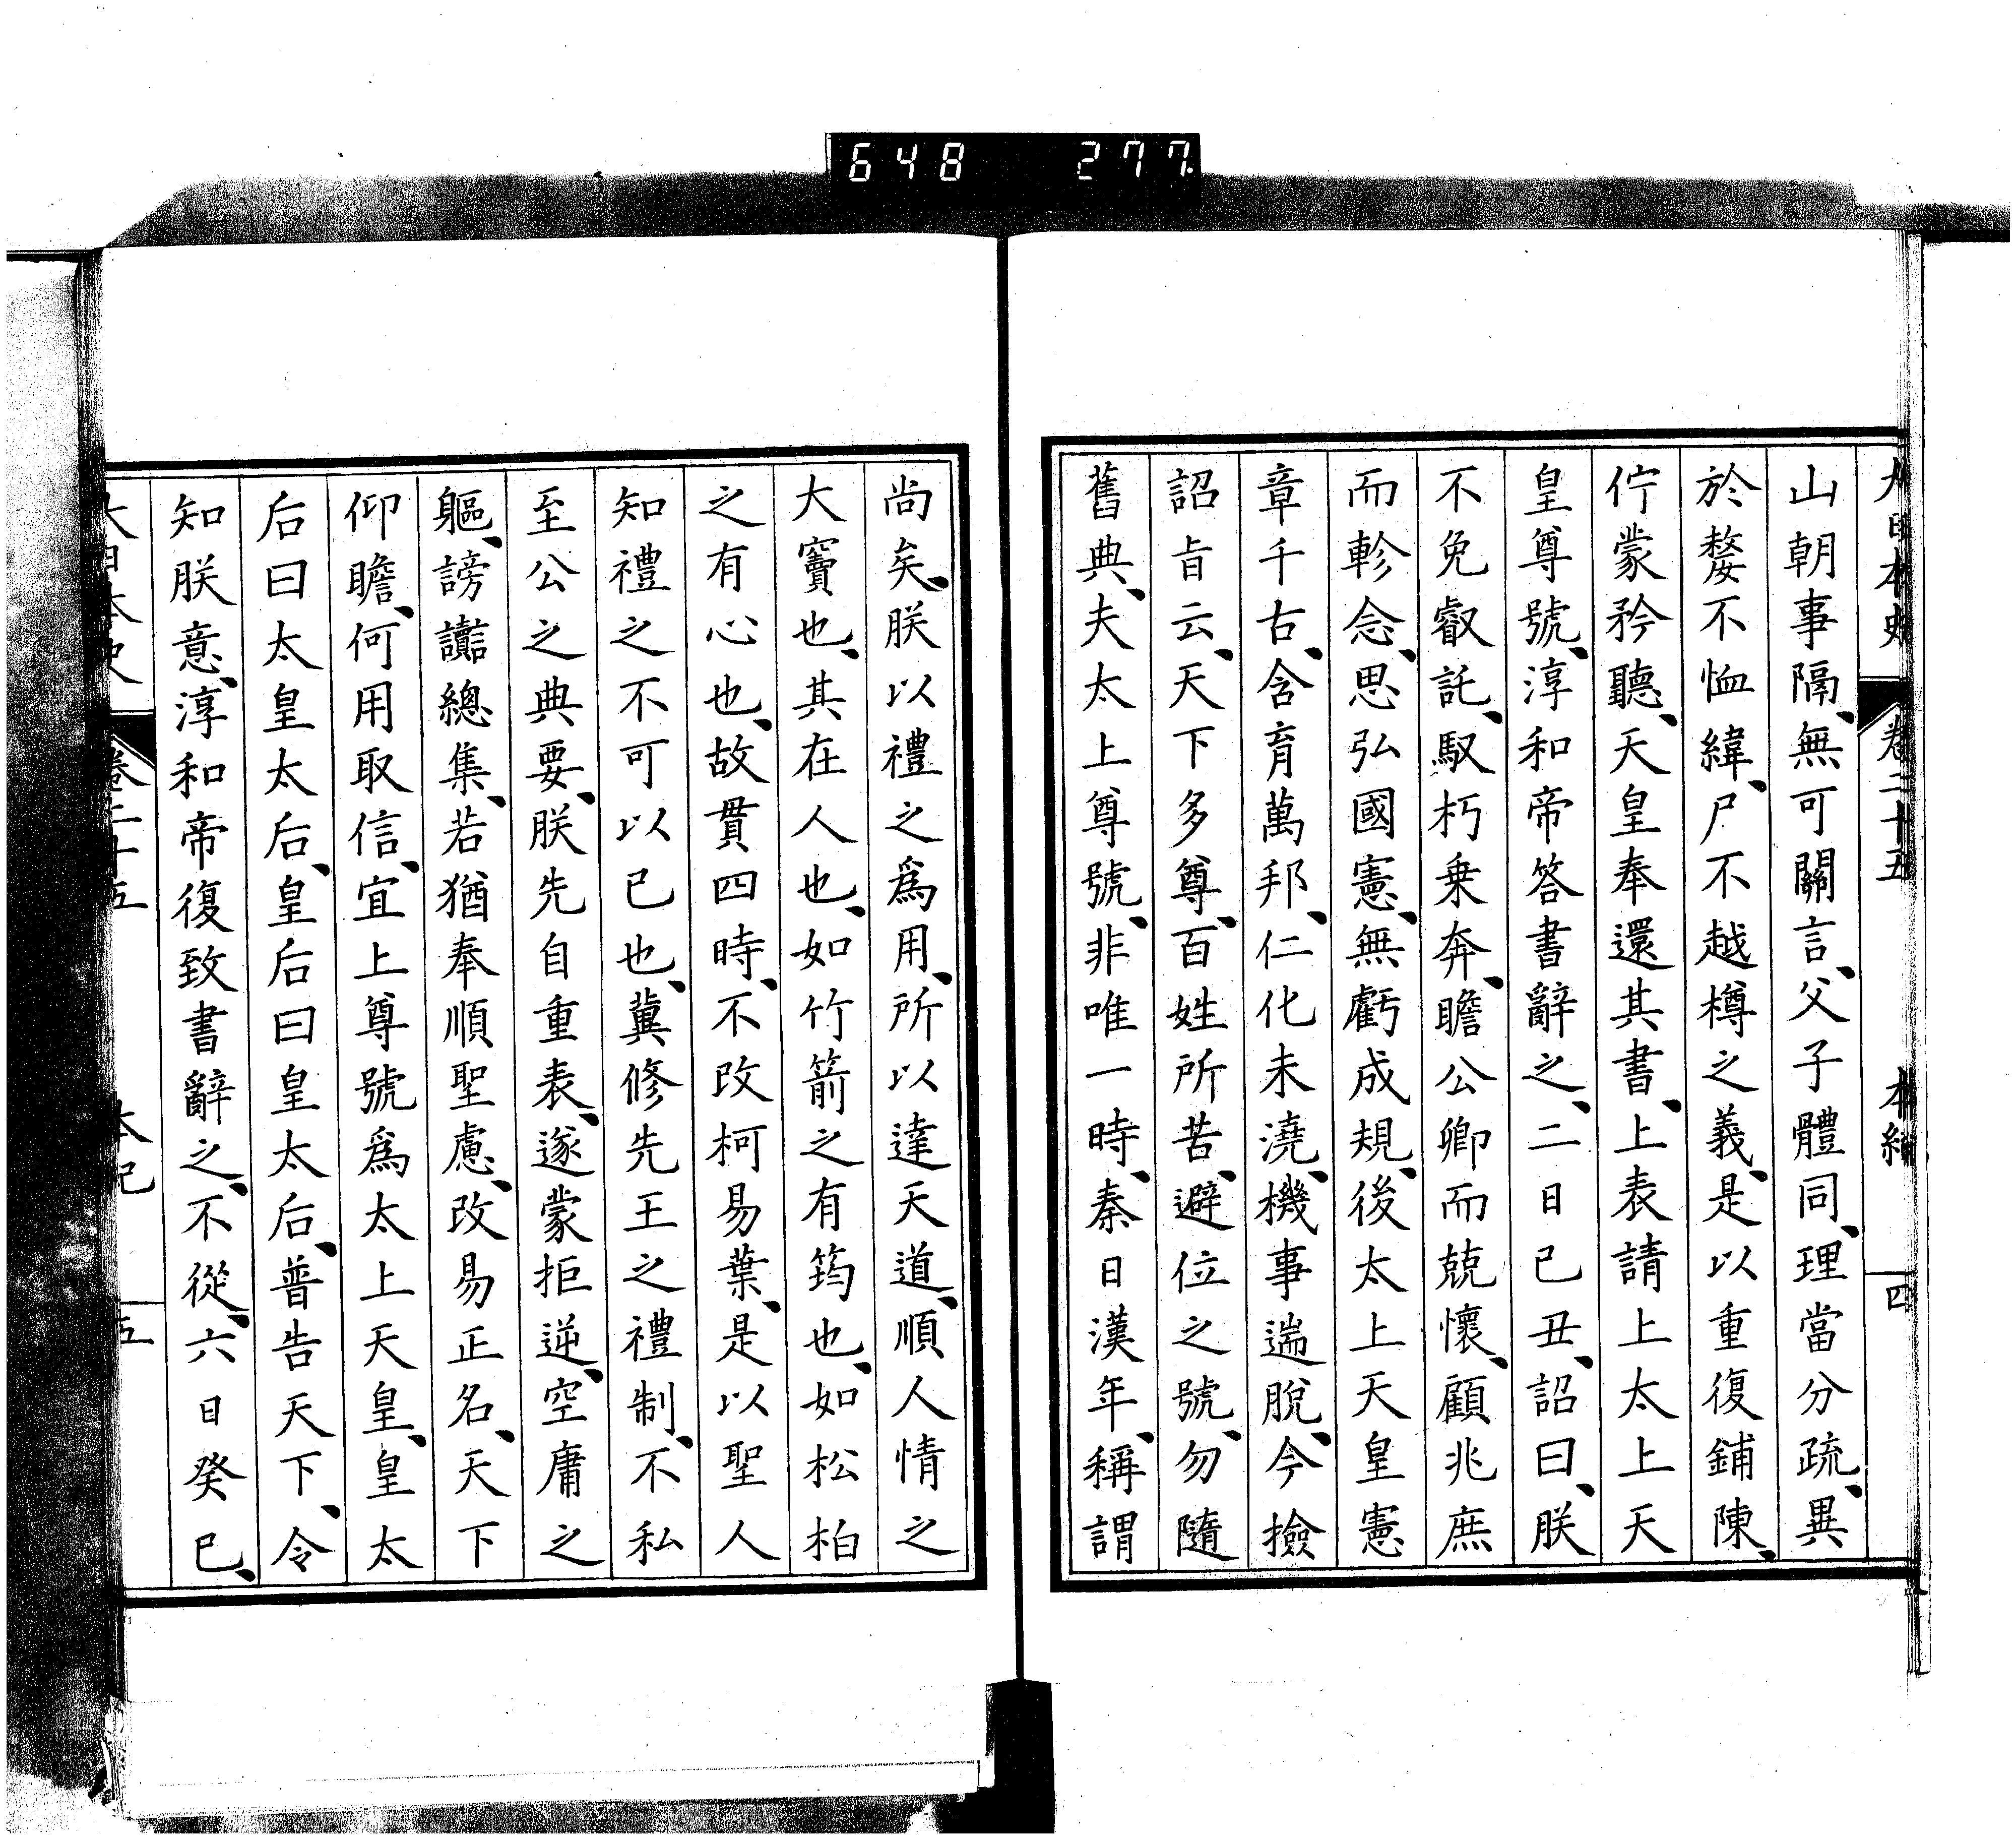 648 277
大日本史 卷二十五 本紀 四
山朝事隔、無可關言、父子體同、理當分疏、異
於嫠不恤緯、尸不越樽之義、是以重復鋪陳、
佇蒙矜聽、天皇奉還其書、上表請上太上天
皇尊號、淳和帝答書辭之、二日己丑、詔曰、朕
不免叡託、馭朽乗奔、瞻公卿而兢懷、顧兆庶
而軫念、思弘國憲、無虧成規、後太上天皇憲
章千古、含育萬邦、仁化未澆、機事遄脫、今撿
詔旨云、天下多尊、百姓所苦、避位之號、勿隨
舊典、夫太上尊號、非唯一時、秦日漢年、稱謂
尚矣、朕以禮之爲用、所以達天道、順人情之
大竇也、其在人也、如竹箭之有筠也、如松柏
之有心也、故貫四時、不改柯易葉、是以聖人
知禮之不可以已也、冀修先王之禮制、不私
至公之典要、朕先自重表、遂蒙拒逆、空庸之
軀、謗讟總集、若猶奉順聖慮、改易正名、天下
仰瞻、何用取信、宜上尊號爲太上天皇、皇太
后曰太皇太后、皇后曰皇太后、普告天下、令
知朕意、淳和帝復致書辭之、不從、六日癸巳、
大日本史 卷二十五 本紀 五